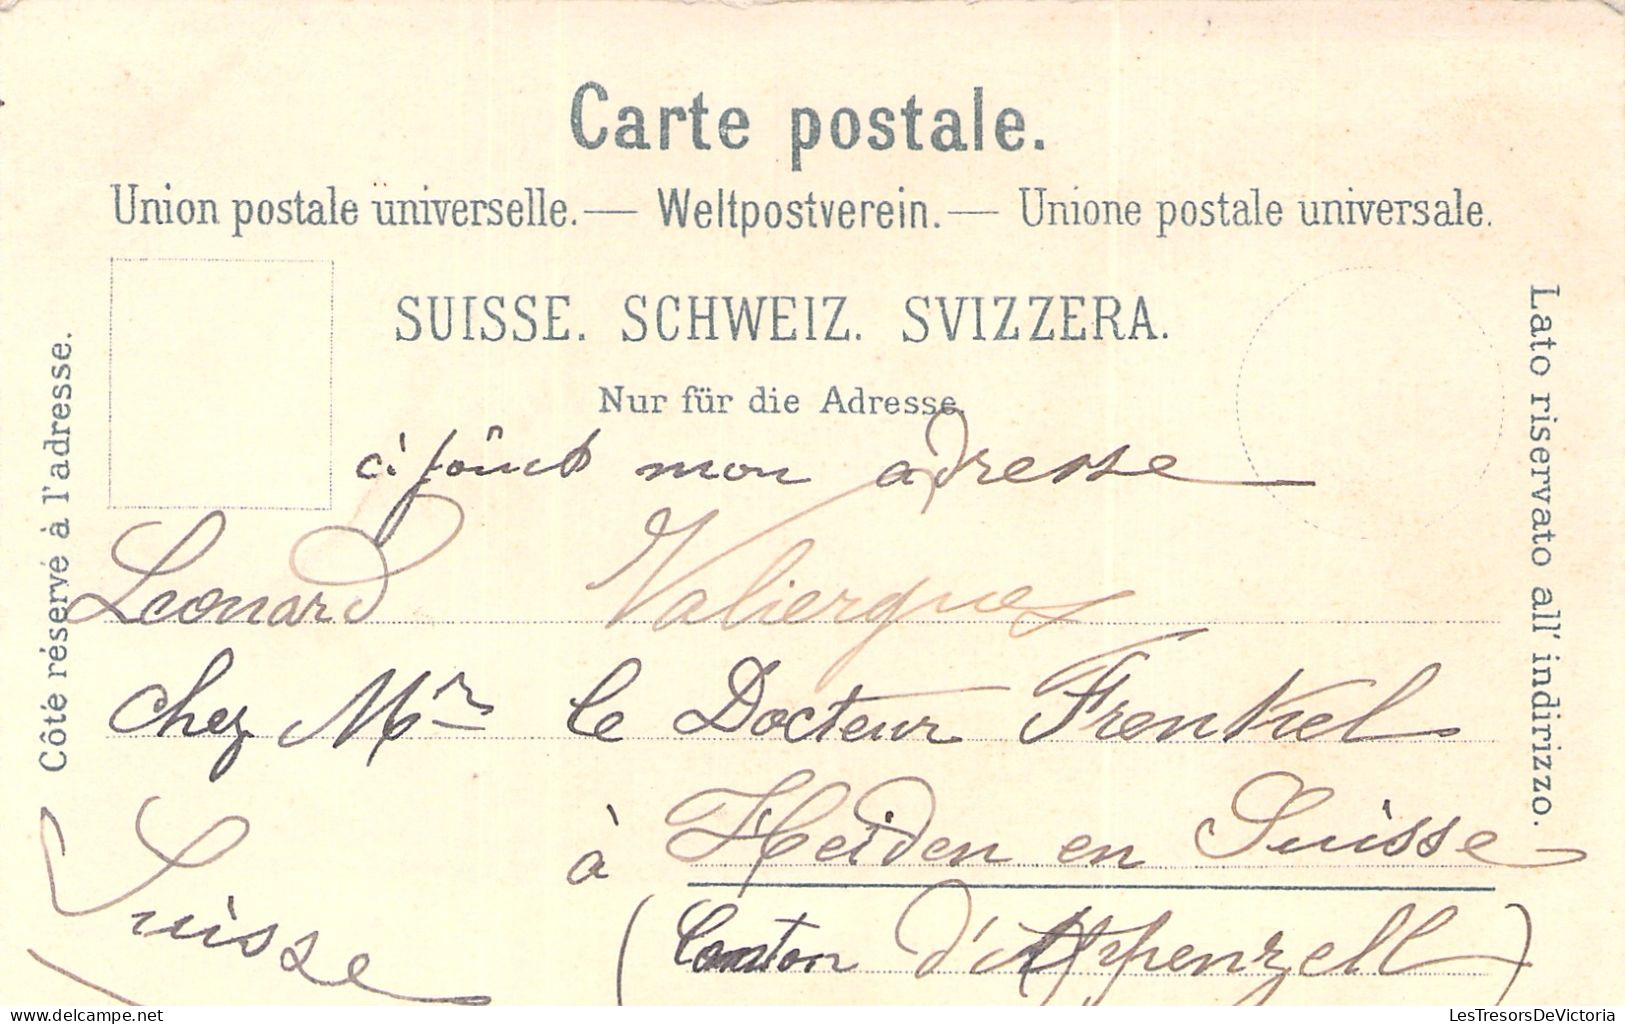 Carte postale.
Union postale universelle. — Weltpostverein. — Unione postale universale.
SUISSE. SCHWEIZ. SVIZZERA.
Nur für die Adresse.
Côté réservé à l'adresse.
Lato riservato all' indirizzo.
ci joint mon adresse
Leonard Valiergues
chez Mr le Docteur Frenkel
à Heiden en Suisse
(Canton d'Appenzell)
Suisse
delcampe.net
LesTresorsDeVictoria